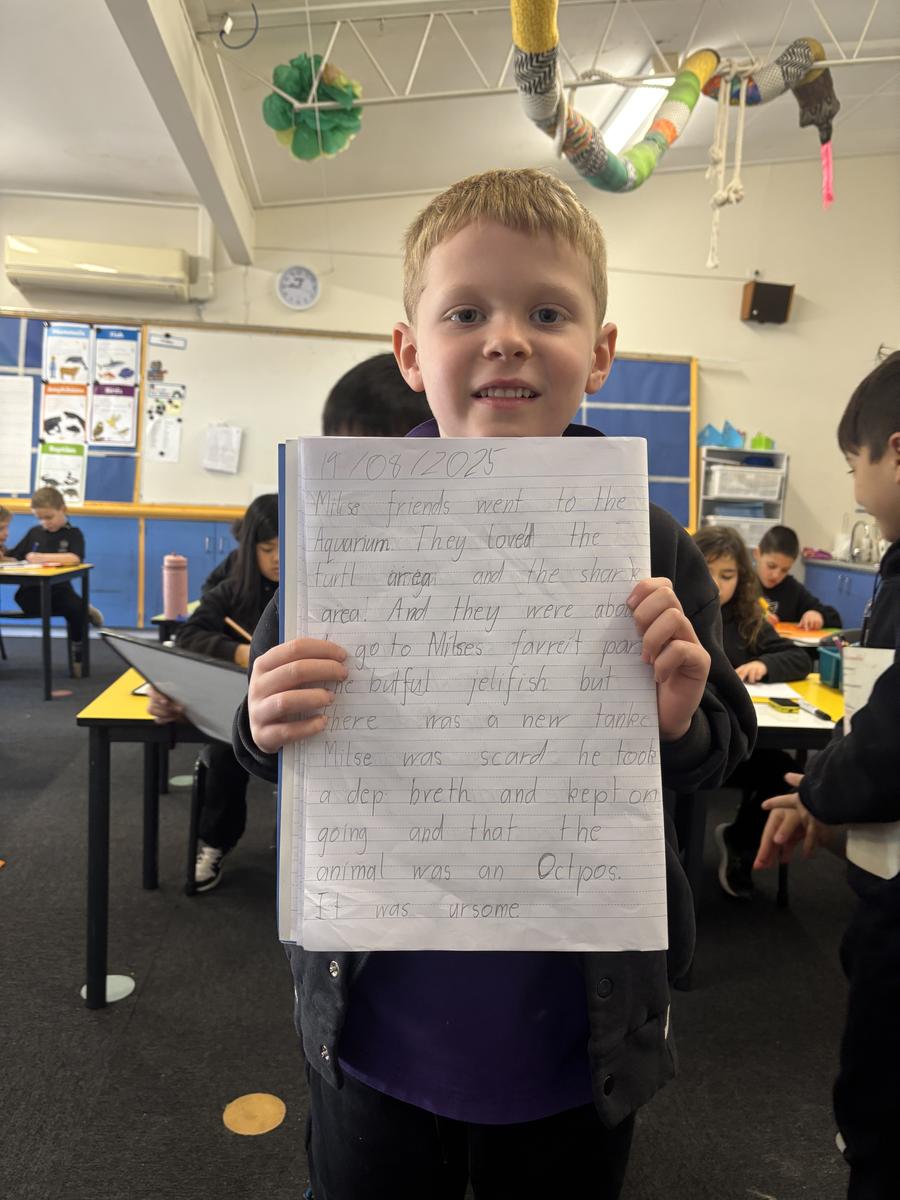 19/08/2025
Milse friends went to the
Aquarium. They loved the
turtl area and the shark
area! And they were abou
to go to Milses favreit par
the butful jelifish but
there was a new tanke
Milse was scard he took
a dep breth and kept on
going and that the
animal was an Octpos.
It was ursome
Mammals
Fish
Amphibians
Birds
Reptiles